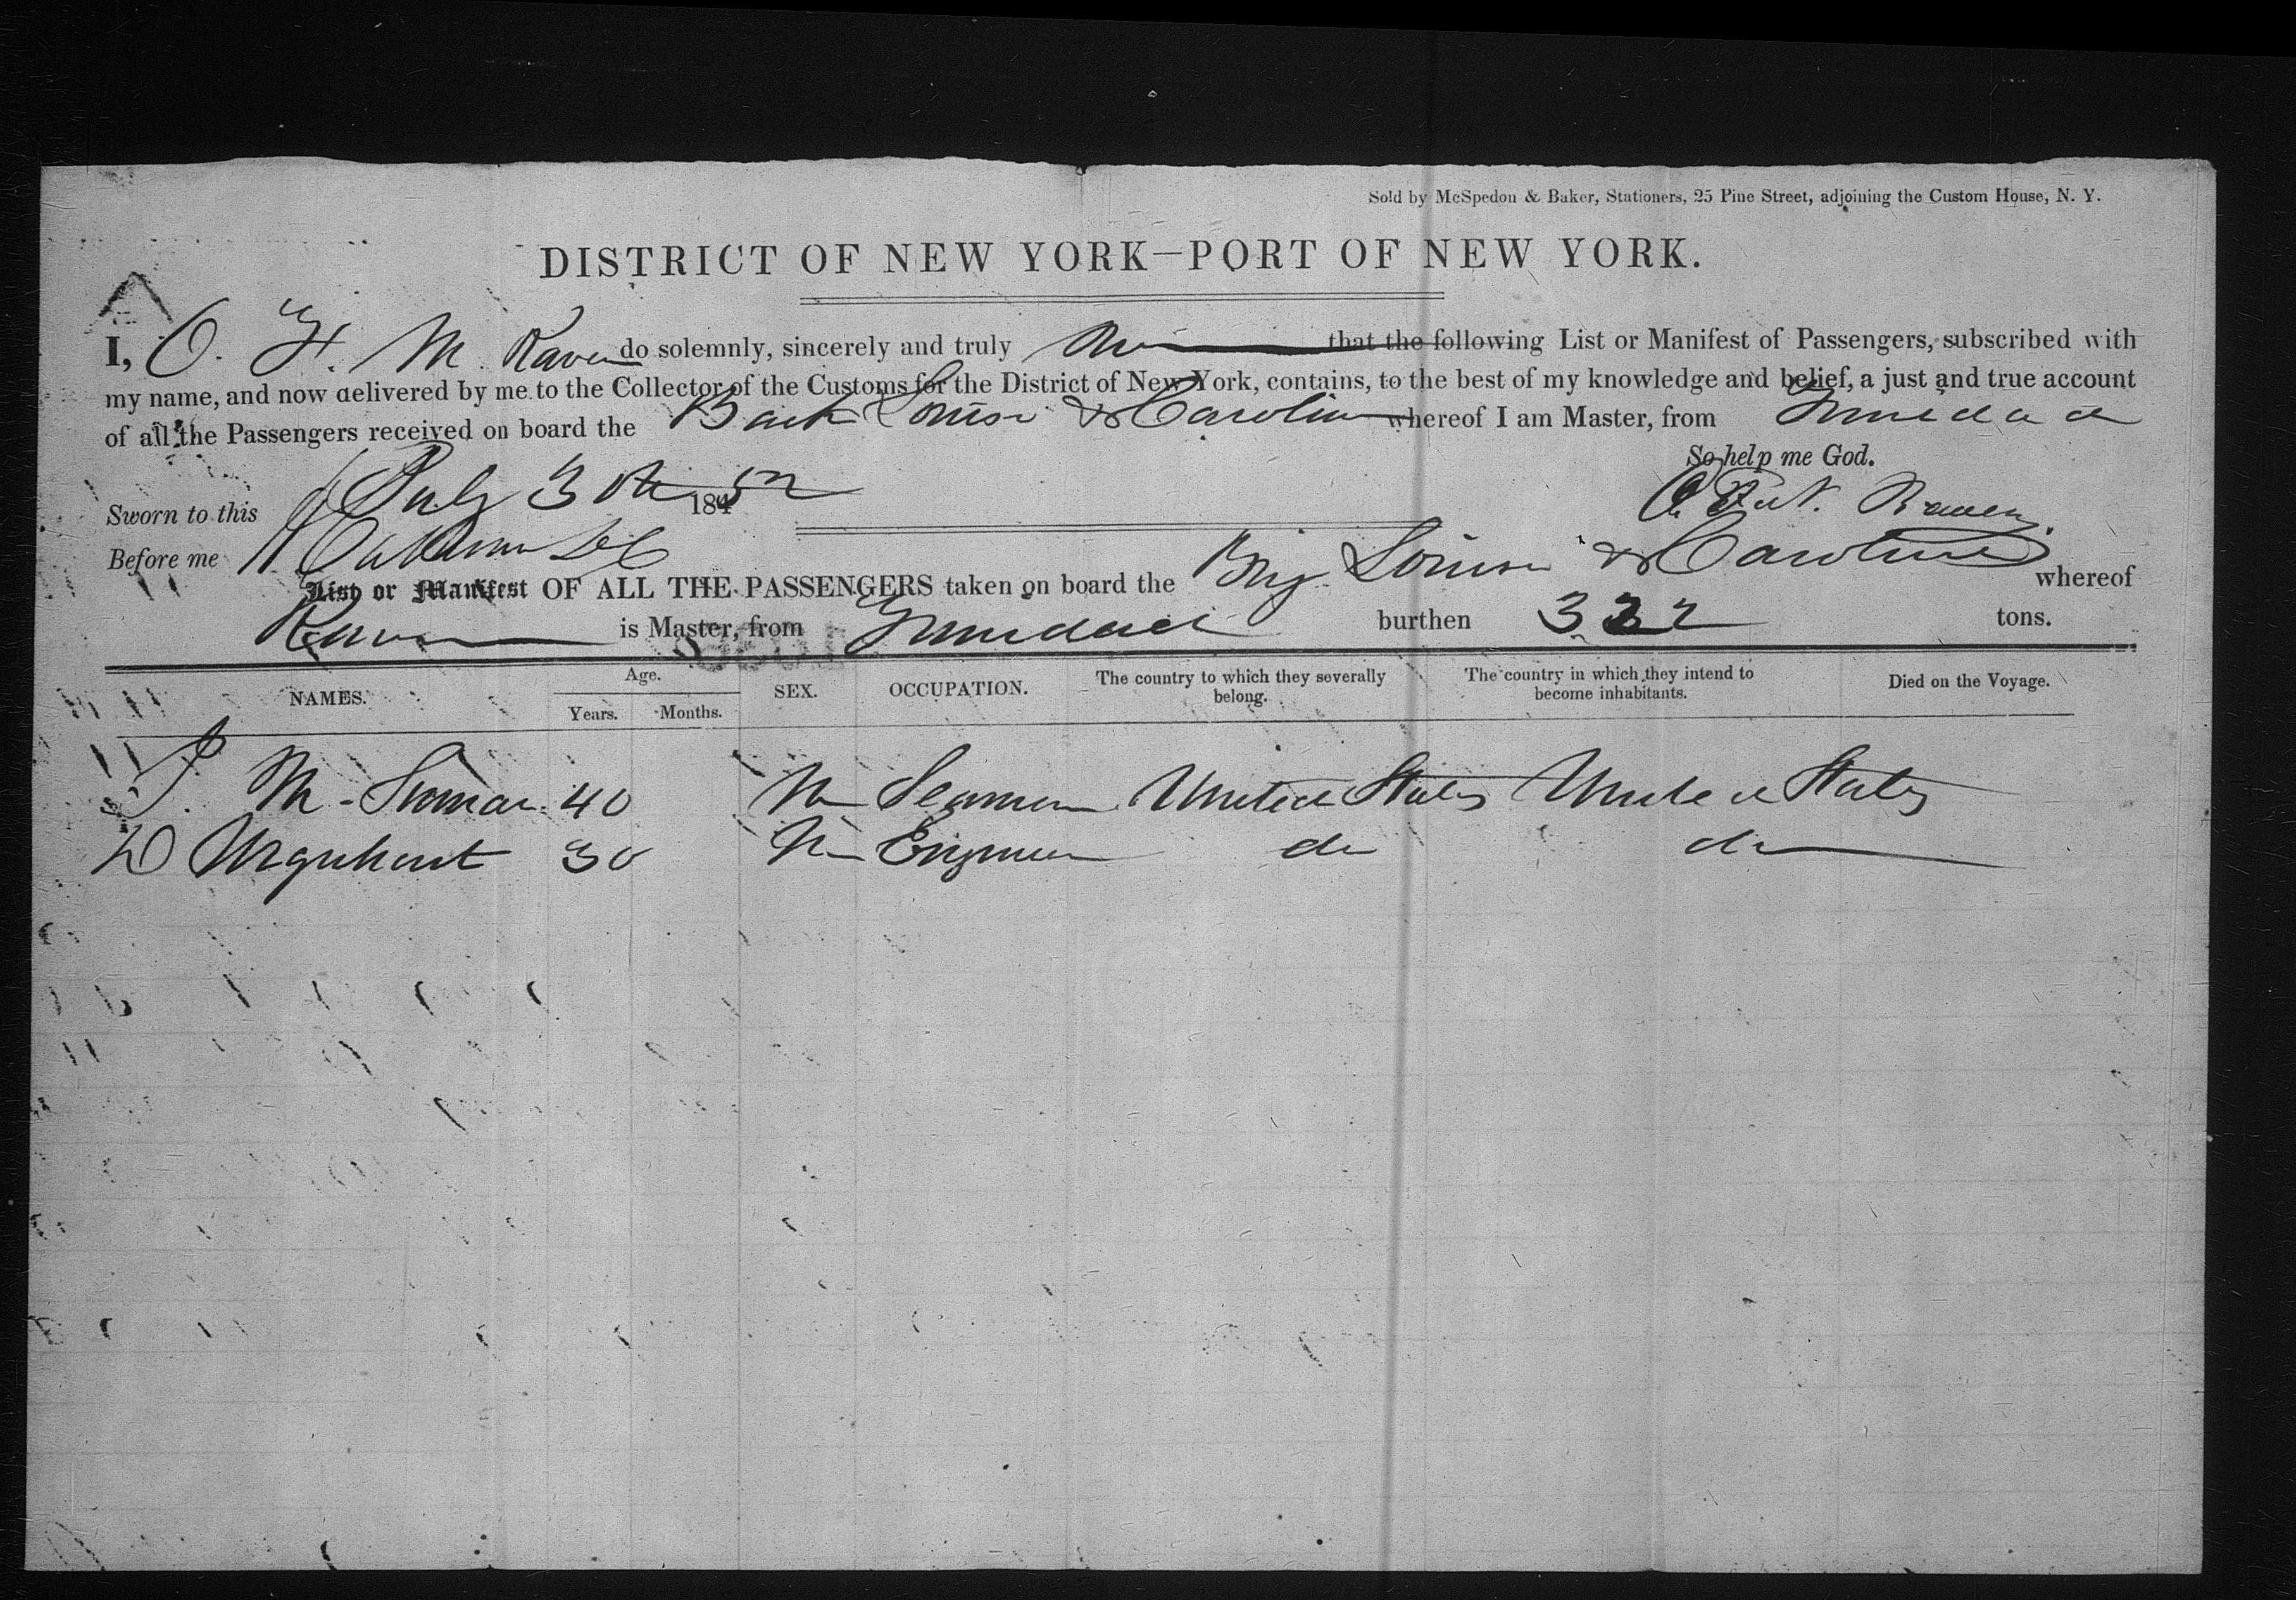 Sold by McSpedon & Baker, Stationers, 25 Pine Street, adjoining the Custom House, N. Y.
DISTRICT OF NEW YORK—PORT OF NEW YORK.
I, O. H. M. Raven do solemnly, sincerely and truly that the following List or Manifest of Passengers, subscribed with
my name, and now delivered by me to the Collector of the Customs for the District of New York, contains, to the best of my knowledge and belief, a just and true account
of all the Passengers received on board the Bark Louisa & Caroline whereof I am Master, from Trinidad
So help me God.
Sworn to this July 30th 1852
Before me
List or Manifest OF ALL THE PASSENGERS taken on board the Brig Louisa & Caroline whereof
Raven is Master, from Trinidad burthen 322 tons.
NAMES. Age. Years. Months. SEX. OCCUPATION. The country to which they severally belong. The country in which they intend to become inhabitants. Died on the Voyage.
J. M. 40 M Seaman United States United States
D Urquhart 30 M Engineer do do